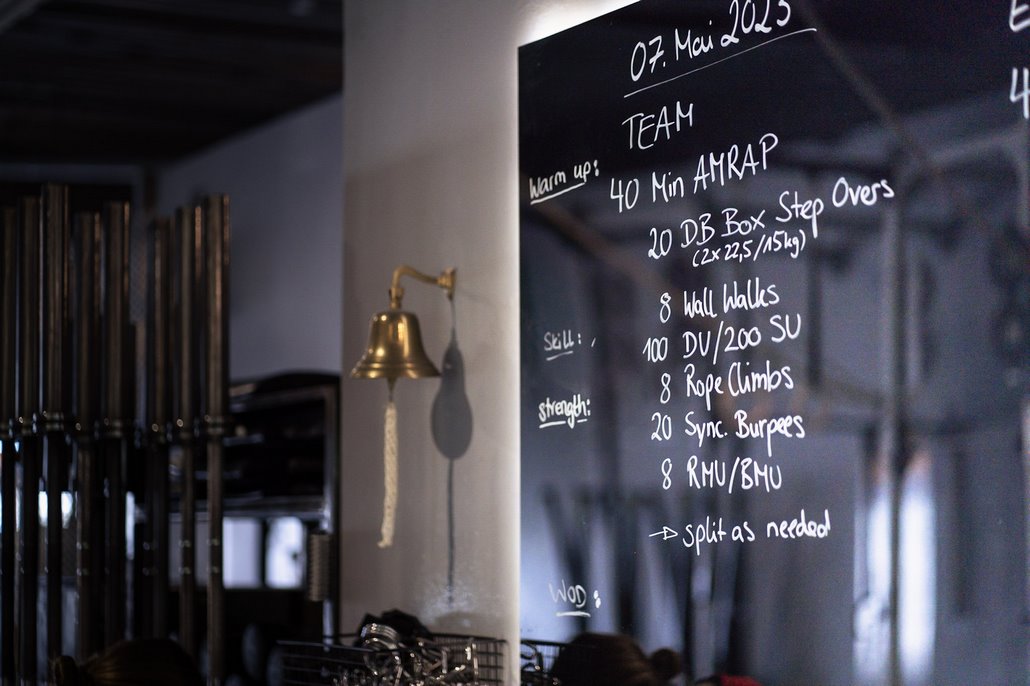 07. Mai 2023
TEAM
Warm up:
40 Min AMRAP
20 DB Box Step Overs
(2x22,5/15kg)
8 Wall Walks
Skill:
100 DU/200 SU
8 Rope Climbs
strength:
20 Sync. Burpees
8 RMU/BMU
→ split as needed
WOD:
E
4